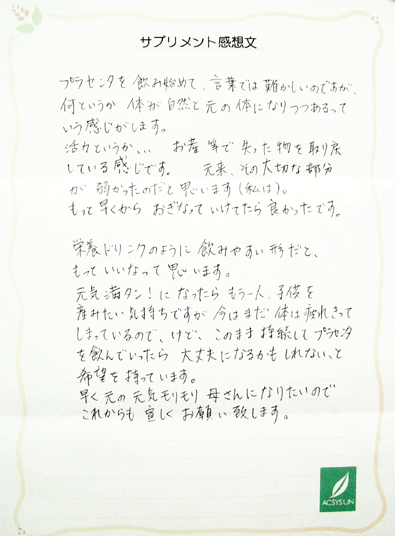 サプリメント感想文
プラセンタを飲み始めて、言葉では難かしいのですが、
何というか 体が自然と元の体になりつつあるって
いう感じがします。
活力というか、、、 お産等で失った物を取り戻
している感じです。 元来、その大切な部分
が弱かったのだと思います(私は)。
もっと早くから おぎなっていけてたら良かったです。
栄養ドリンクのように飲みやすい形だと、
もっといいなって思います。
元気満タン!になったら もう一人、子供を
産みたい気持ちですが今はまだ 体は疲れきって
しまっているので、けど、このまま持続してプラセンタ
を飲んでいったら 大丈夫になるかもしれない、と
希望を持っています。
早く元の元気モリモリ母さんになりたいので
これからも宜しくお願い致します。
ACSYSUN